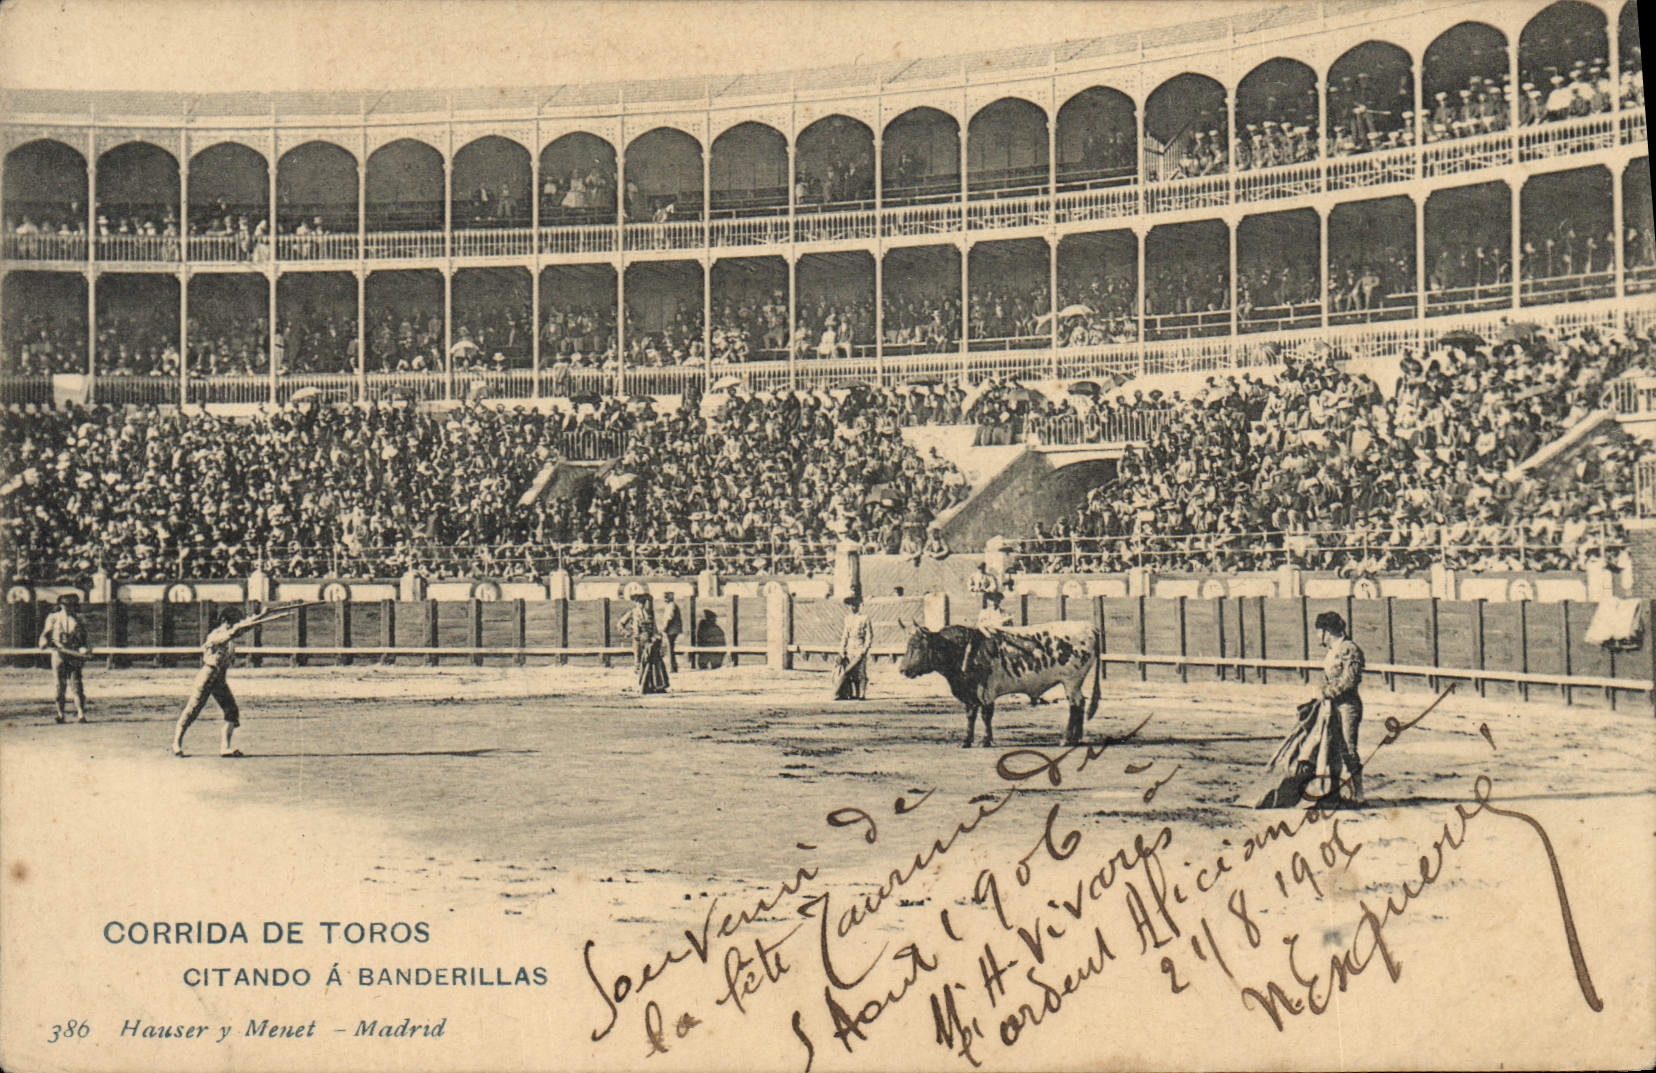 CORRIDA DE TOROS
CITANDO Á BANDERILLAS
386 Hauser y Menet – Madrid
Souvenir de
la fête Taurine du
5 Aout 1906 à
Mr H. Vivarès
l'ardent Aficionado
21/8 1906